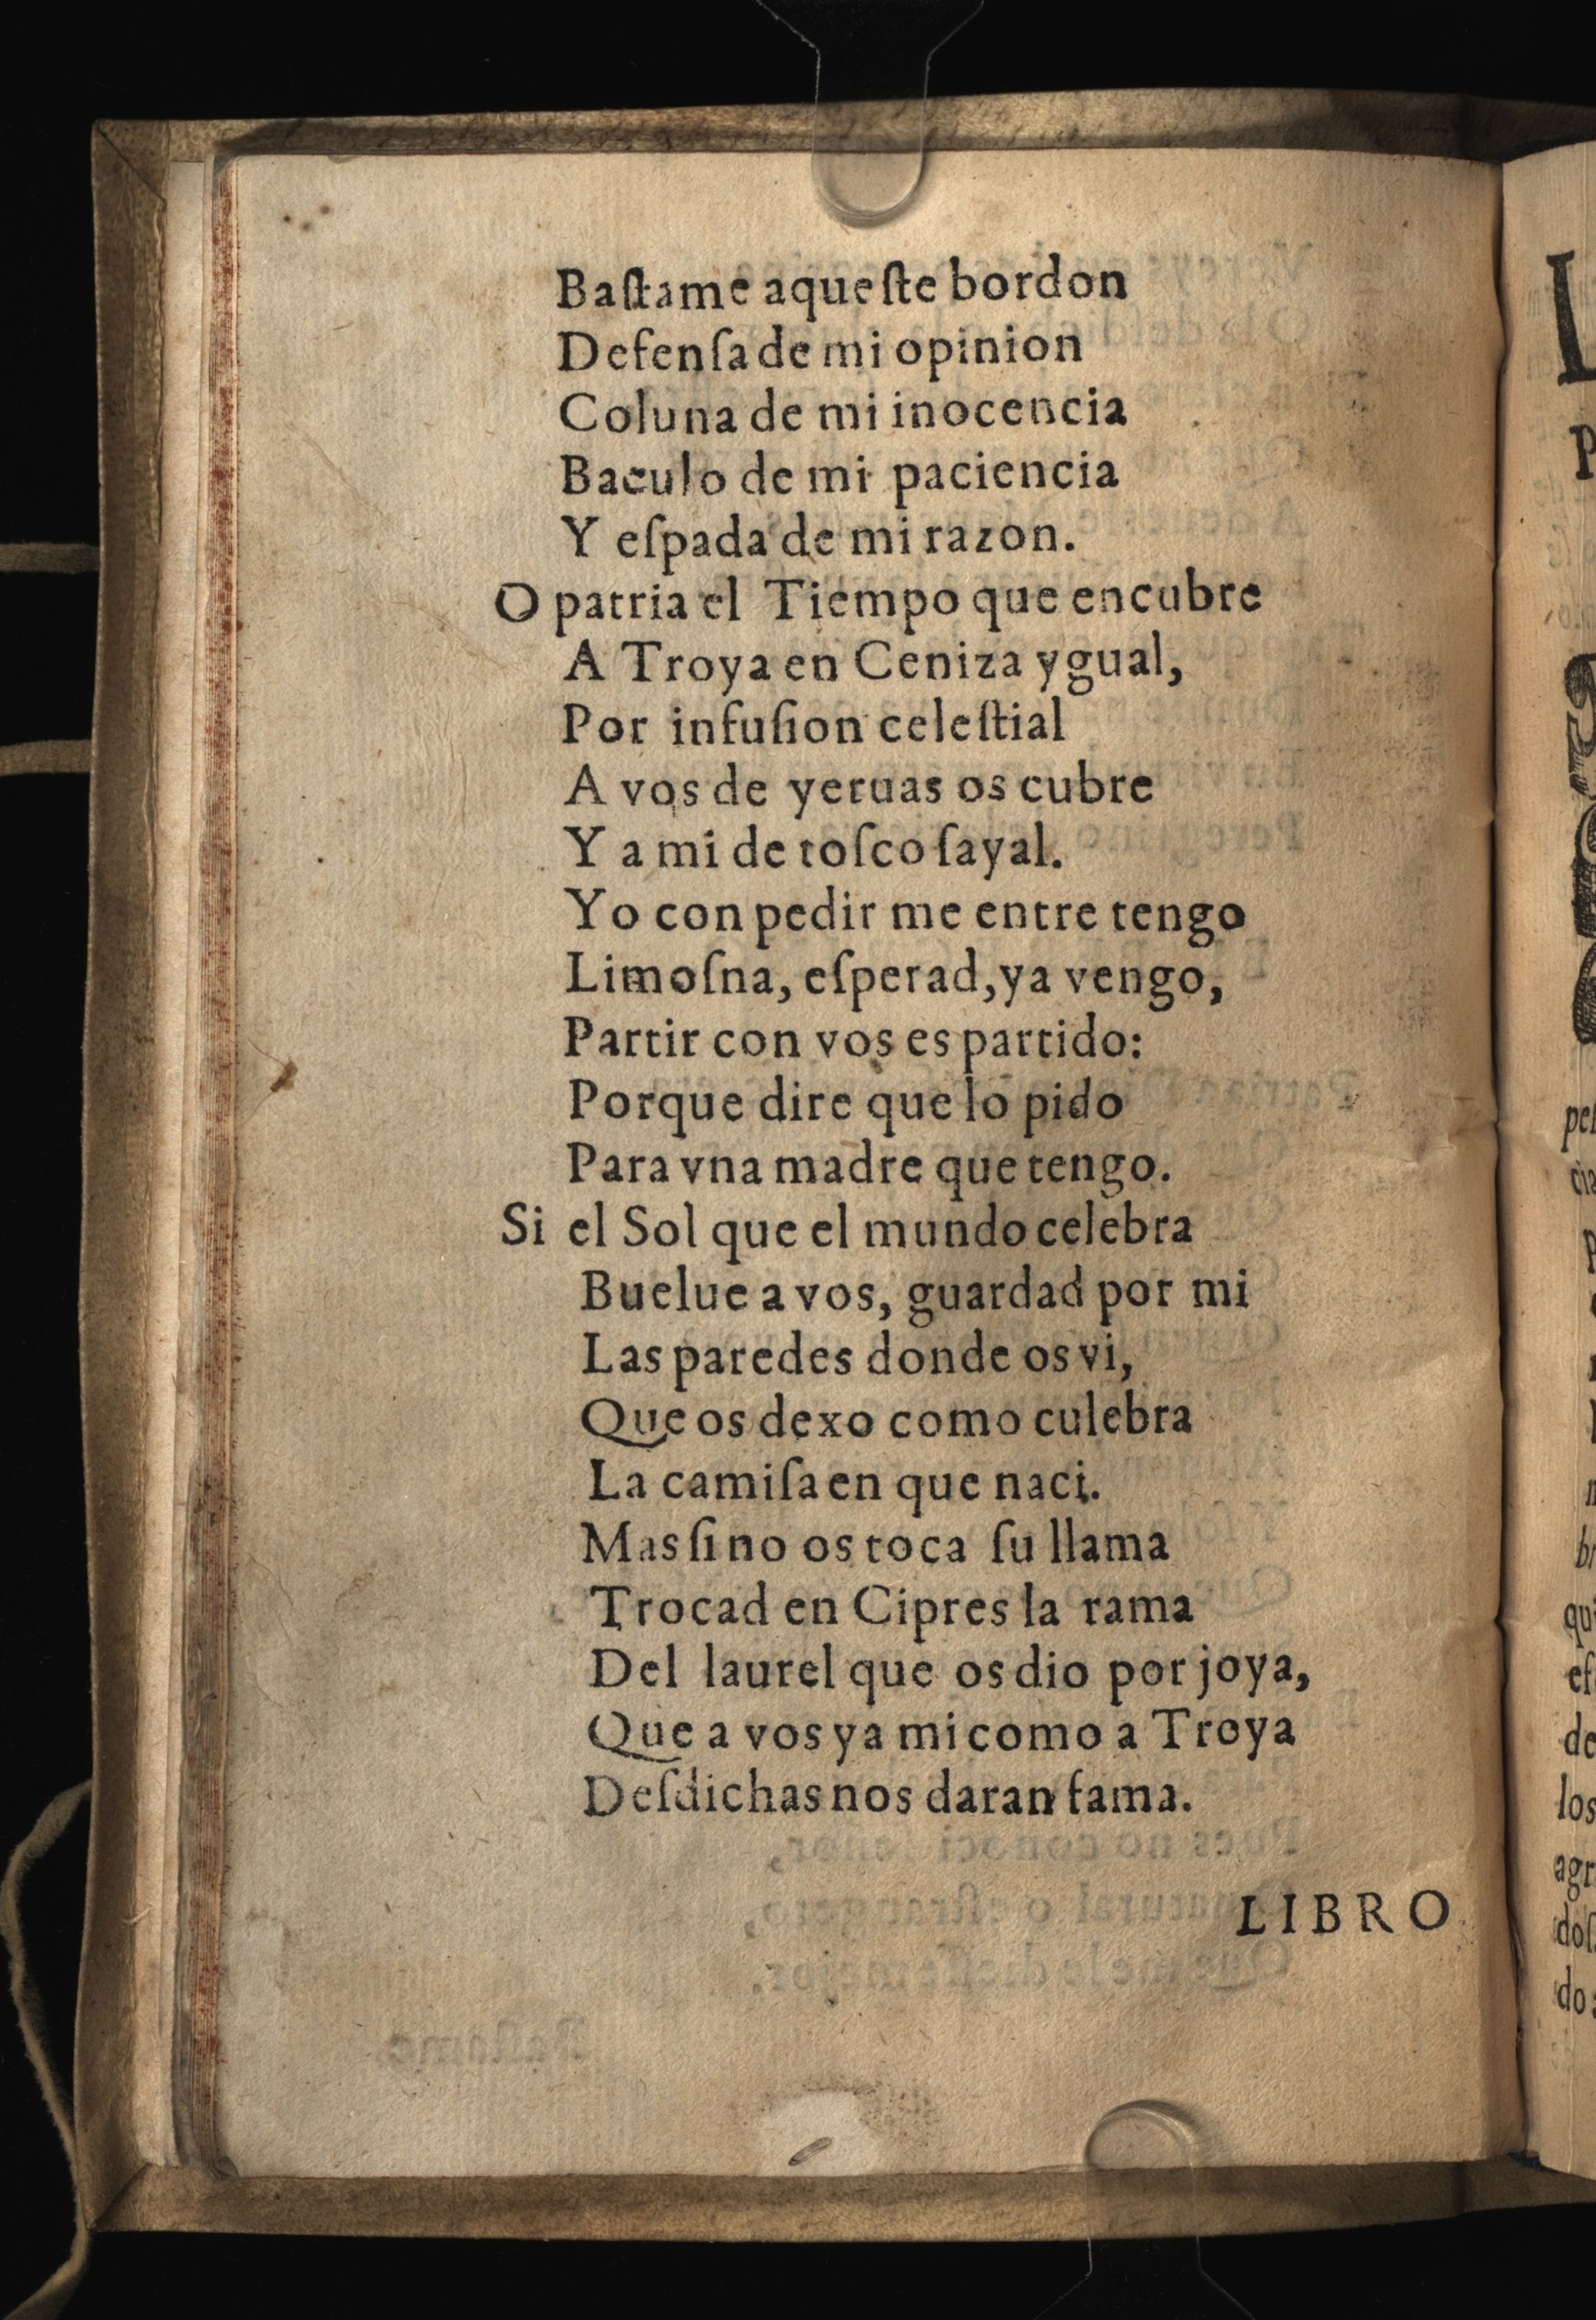 Baſtame aqueſte bordon
Defenſa de mi opinion
Coluna de mi inocencia
Baculo de mi paciencia
Y eſpada de mi razon.
O patria el Tiempo que encubre
A Troya en Ceniza ygual,
Por infuſion celeſtial
A vos de yeruas os cubre
Y a mi de toſco ſayal.
Yo con pedir me entre tengo
Limoſna, eſperad, ya vengo,
Partir con vos es partido:
Porque dire que lo pido
Para vna madre que tengo.
Si el Sol que el mundo celebra
Buelue a vos, guardad por mi
Las paredes donde os vi,
Que os dexo como culebra
La camiſa en que naci.
Mas ſi no os toca ſu llama
Trocad en Cipres la rama
Del laurel que os dio por joya,
Que a vos y a mi como a Troya
Deſdichas nos daran fama.
LIBRO